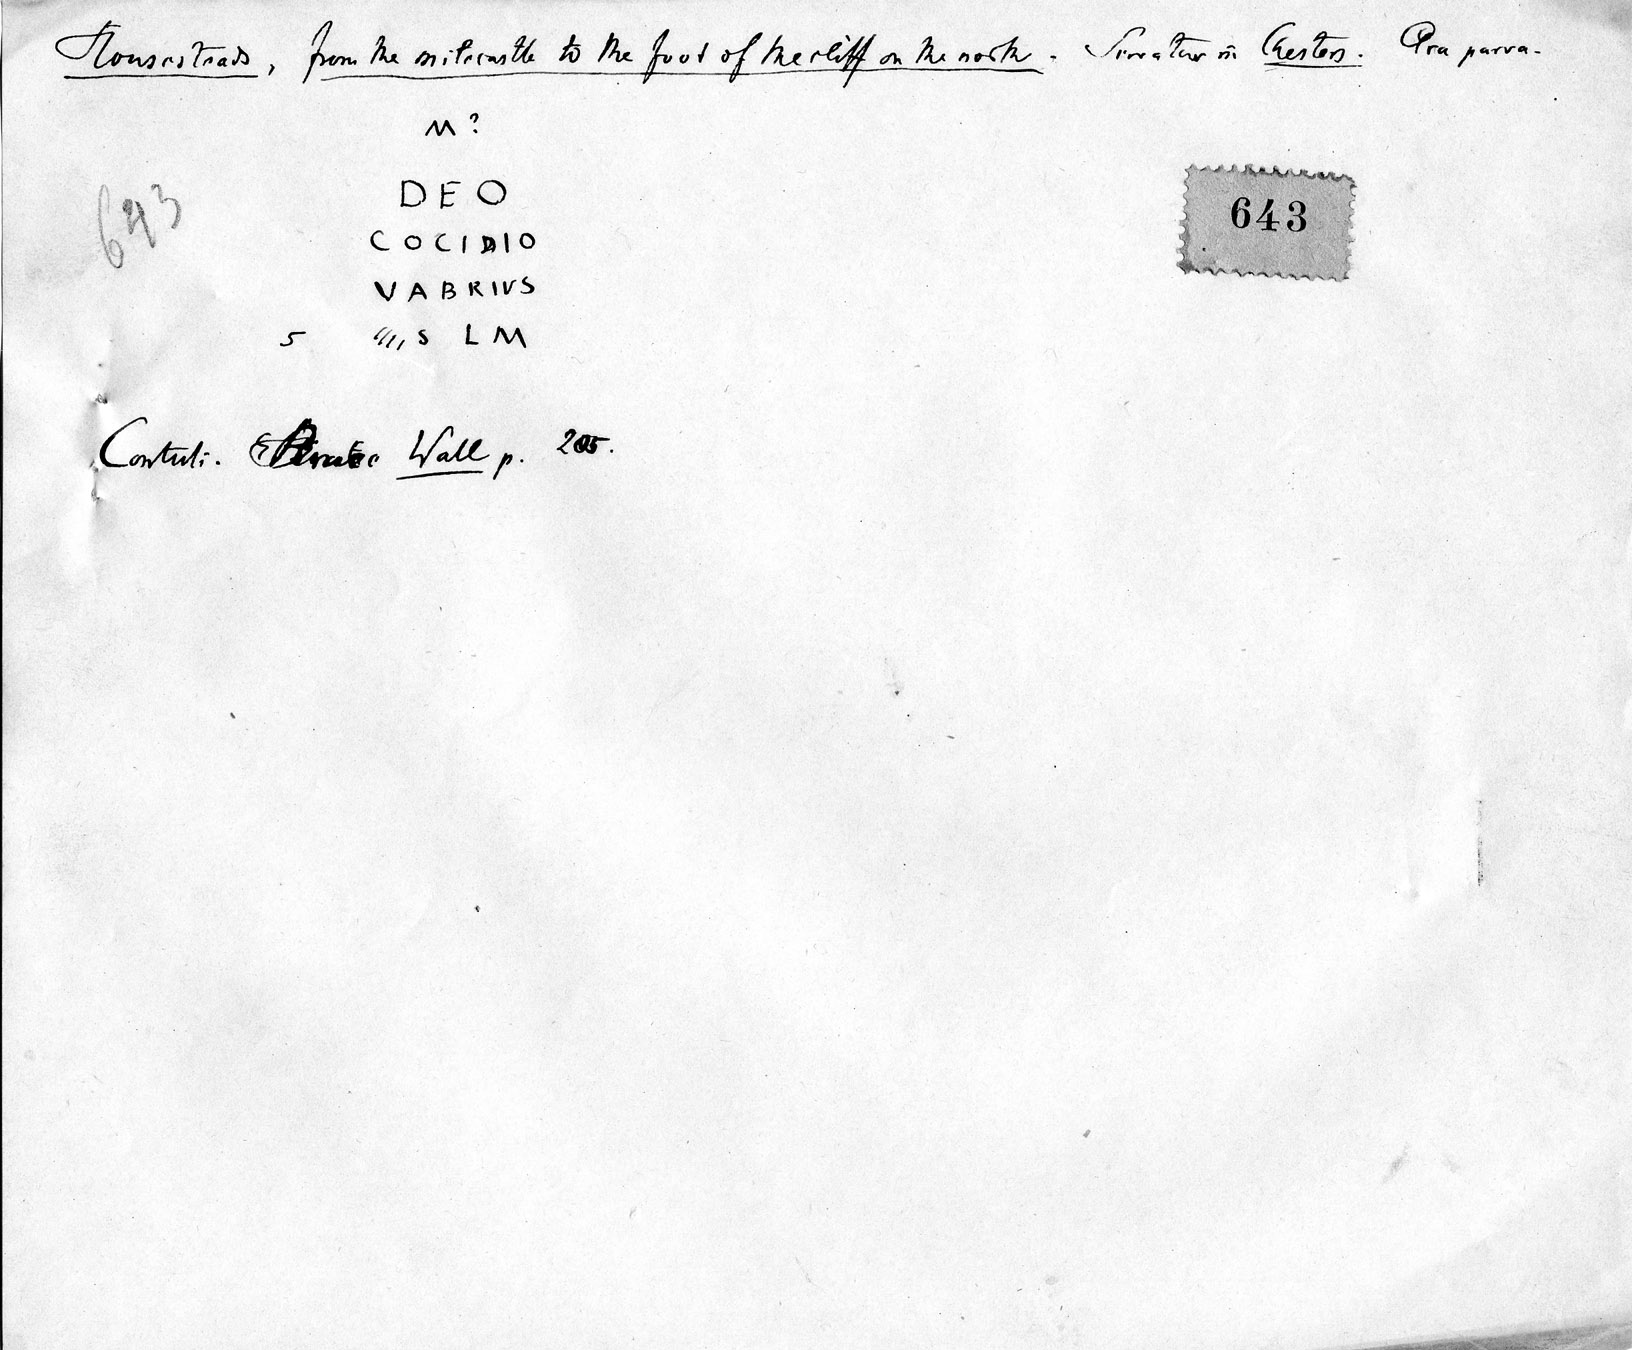 Housesteads, from the milecastle to the foot of the cliff on the north. Servatur in Chesters. Ara parva.
M?
DEO
643
643
COCIDIO
VABRIVS
5 S L M
Contuli. Wall p. 205.